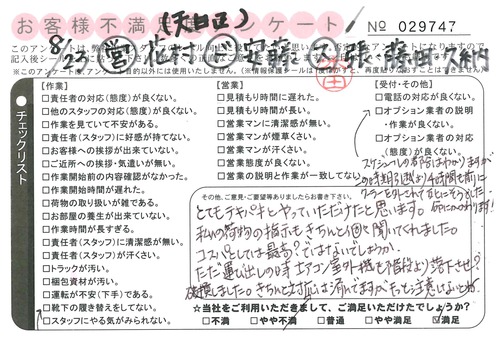 お客様不満 アンケート
(天白区)
No 029747
8/23 営 花村 ど 安藤 ス 張・藤田 久納
※このアンケートは、アンケート目的以外には使用いたしません。
チェックリスト
【作業】
□責任者の対応(態度)が良くない。
□他のスタッフの対応(態度)が良くない。
□作業を見ていて不安がある。
□責任者(スタッフ)に好感が持てない。
□お客様への挨拶が出来ていない。
□ご近所への挨拶・気遣いが無い。
□作業開始前の内容確認がなかった。
□作業開始時間が遅れた。
□荷物の取り扱いが雑である。
□お部屋の養生が出来ていない。
□作業時間が長すぎる。
□責任者(スタッフ)に清潔感が無い。
□責任者(スタッフ)が汗くさい。
□トラックが汚い。
□梱包資材が汚い。
□運転が不安(下手)である。
□靴下の履き替えをしてない。
□スタッフにやる気がみられない。
【営業】
□見積もり時間に遅れた。
□見積もり時間が長い。
□営業マンに清潔感が無い。
□営業マンが煙草くさい。
□営業マンが汗くさい。
□営業態度が良くない。
□営業の説明と作業が一致してない
【受付・その他】
□電話の対応が良くない。
□オプション業者の説明
・作業が良くない。
□オプション業者の対応
(態度)が良くない。
スケジュールの都合はわかりますが
この時期引越より4時間も前に
クーラーを外されてひどにそうでした
命にかかわります!
その他、ご意見・ご要望等ありましたらお書き下さい。
とてもテキパキとやっていただけたと思います。
私の荷物の指示もきちんと聞いてくれました。
コスパとしては最高?ではないでしょうか。
ただ運び出しの時エアコン屋外機を階段より落下させ?
破損しました。きちんと対応は済んでますがもう少し注意しないとね
☆当社をご利用いただきまして、ご満足いただけたでしょうか?
□不満 □やや不満 □普通 □やや満足 ☑満足